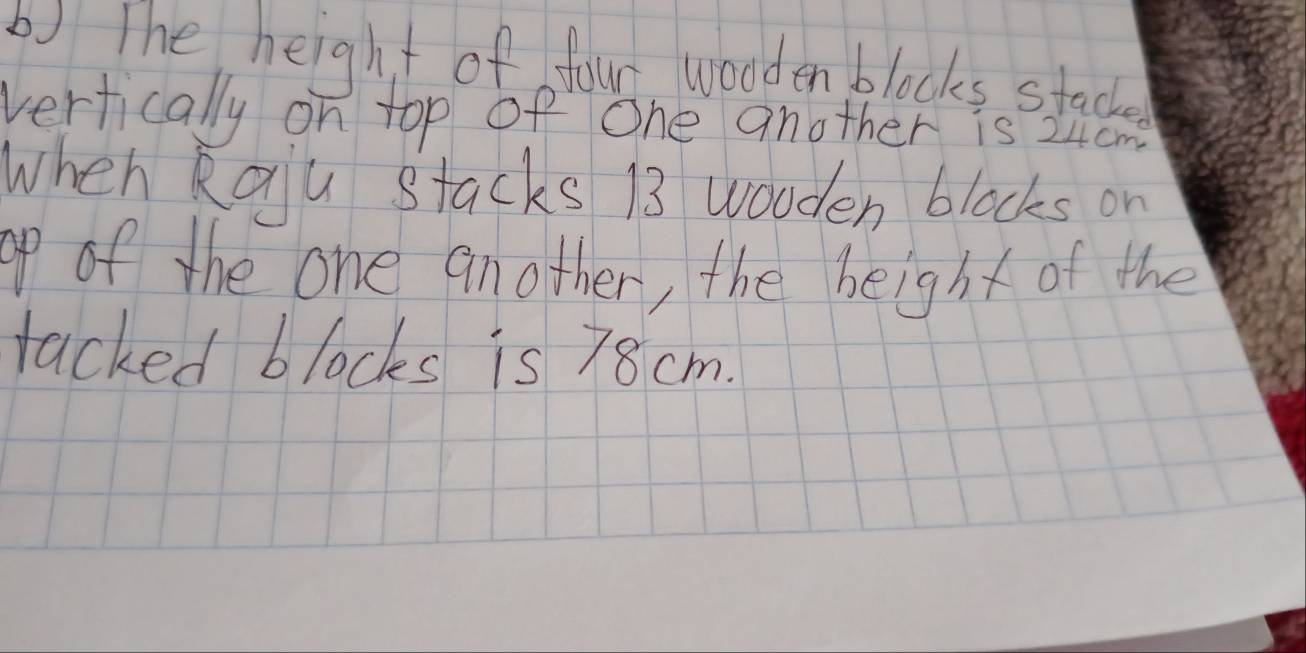 b) The height of four wooden blocks stacked
vertically on top of one another is 24cm.
When Raju stacks 13 wooden blocks on
op of the one another, the height of the
tacked blocks is 78cm.